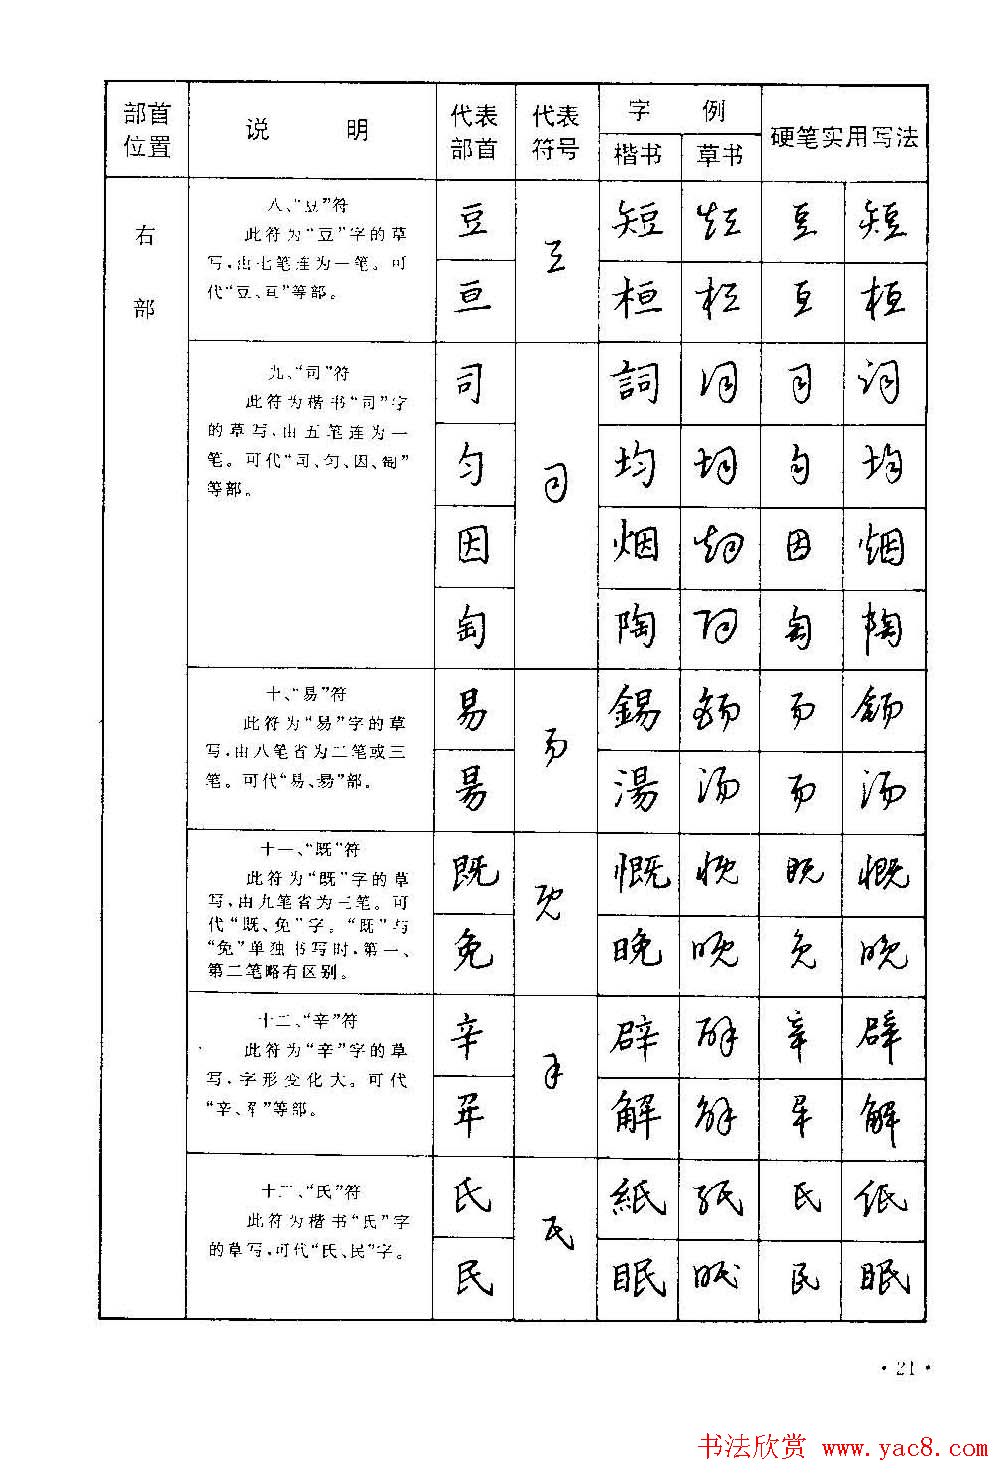 部首位置 说 明 代表部首 代表符号 字 例 硬笔实用写法
楷书 草书
右部
八、“豆”符
此符为“豆”字的草
写,由七笔连为一笔。可
代“豆、亘”等部。
豆 短 短 豆 短
亘 桓 桓 亘 桓
九、“司”符
此符为楷书“司”字
的草写,由五笔连为一
笔。可代“司、匀、因、匋”
等部。
司 詞 词 司 词
匀 均 均 匀 均
因 烟 烟 因 烟
匋 陶 陶 匋 陶
十、“易”符
此符为“易”字的草
写,由八笔省为二笔或三
笔。可代“易、昜”部。
易 錫 锡 易 锡
昜 湯 汤 昜 汤
十一、“既”符
此符为“既”字的草
写,由九笔省为三笔。可
代“既、免”字。“既”与
“免”单独书写时,第一、
第二笔略有区别。
既 慨 慨 既 慨
免 晚 晚 免 晚
十二、“辛”符
此符为“辛”字的草
写,字形变化大。可代
“辛、”等部。
辛 辟 辟 辛 辟
解 解 解
十三、“氏”符
此符为楷书“氏”字
的草写,可代“氏、民”字。
氏 紙 纸 氏 纸
民 眠 眠 民 眠
·21·
书法欣赏 www.yac8.com